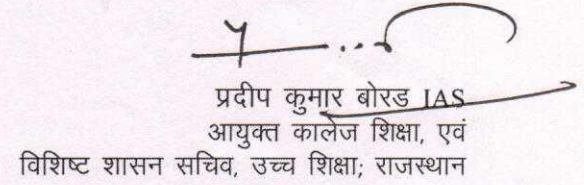 प्रदीप कुमार बोरड IAS
आयुक्त कालेज शिक्षा, एवं
विशिष्ट शासन सचिव, उच्च शिक्षा; राजस्थान